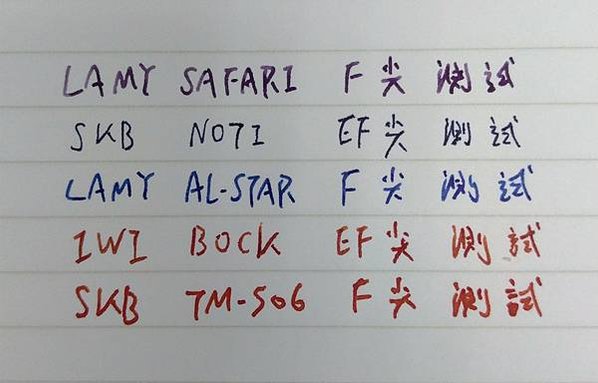 LAMY SAFARI F尖 測試
SKB NOTI EF尖 測試
LAMY AL-STAR F尖 測試
IWI BOCK EF尖 測試
SKB TM-506 F尖 測試